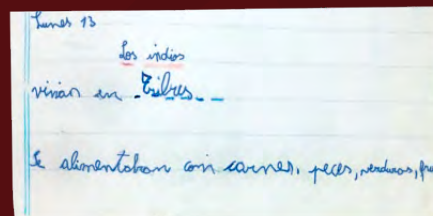 Lunes 13
Los indios
vivian en Tribus
Se alimentaban con carnes, peces, verduras, fru